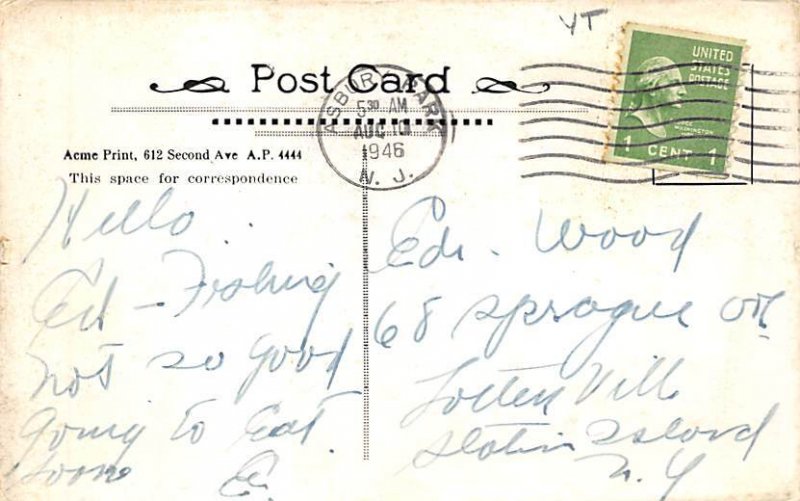 YT
UNITED
STATES
POSTAGE
WASHINGTON
1 CENT 1
Post Card
ASBURY PARK
5 30 AM
AUG
1946
N. J.
Acme Print, 612 Second Ave A.P. 4444
This space for correspondence
Hello
Ed - Fishing
not so good
going to Eat
soon
E
Edr. Wood
68 Sprague
Totten Vill
Staten Island
N. Y